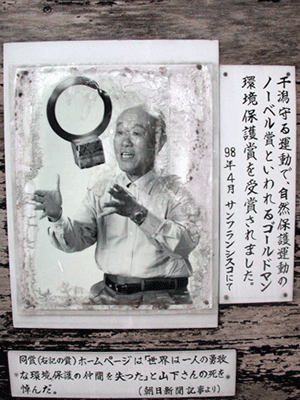 干潟守る運動で、自然保護運動の
ノーベル賞といわれるゴールドマン
環境保護賞を受賞されました。
98年4月 サンフランシスコにて
同賞(右記の賞)ホームページは「世界は一人の勇敢
な環境保護の仲間を失った」と山下さんの死を
悼んだ。
(朝日新聞記事より)